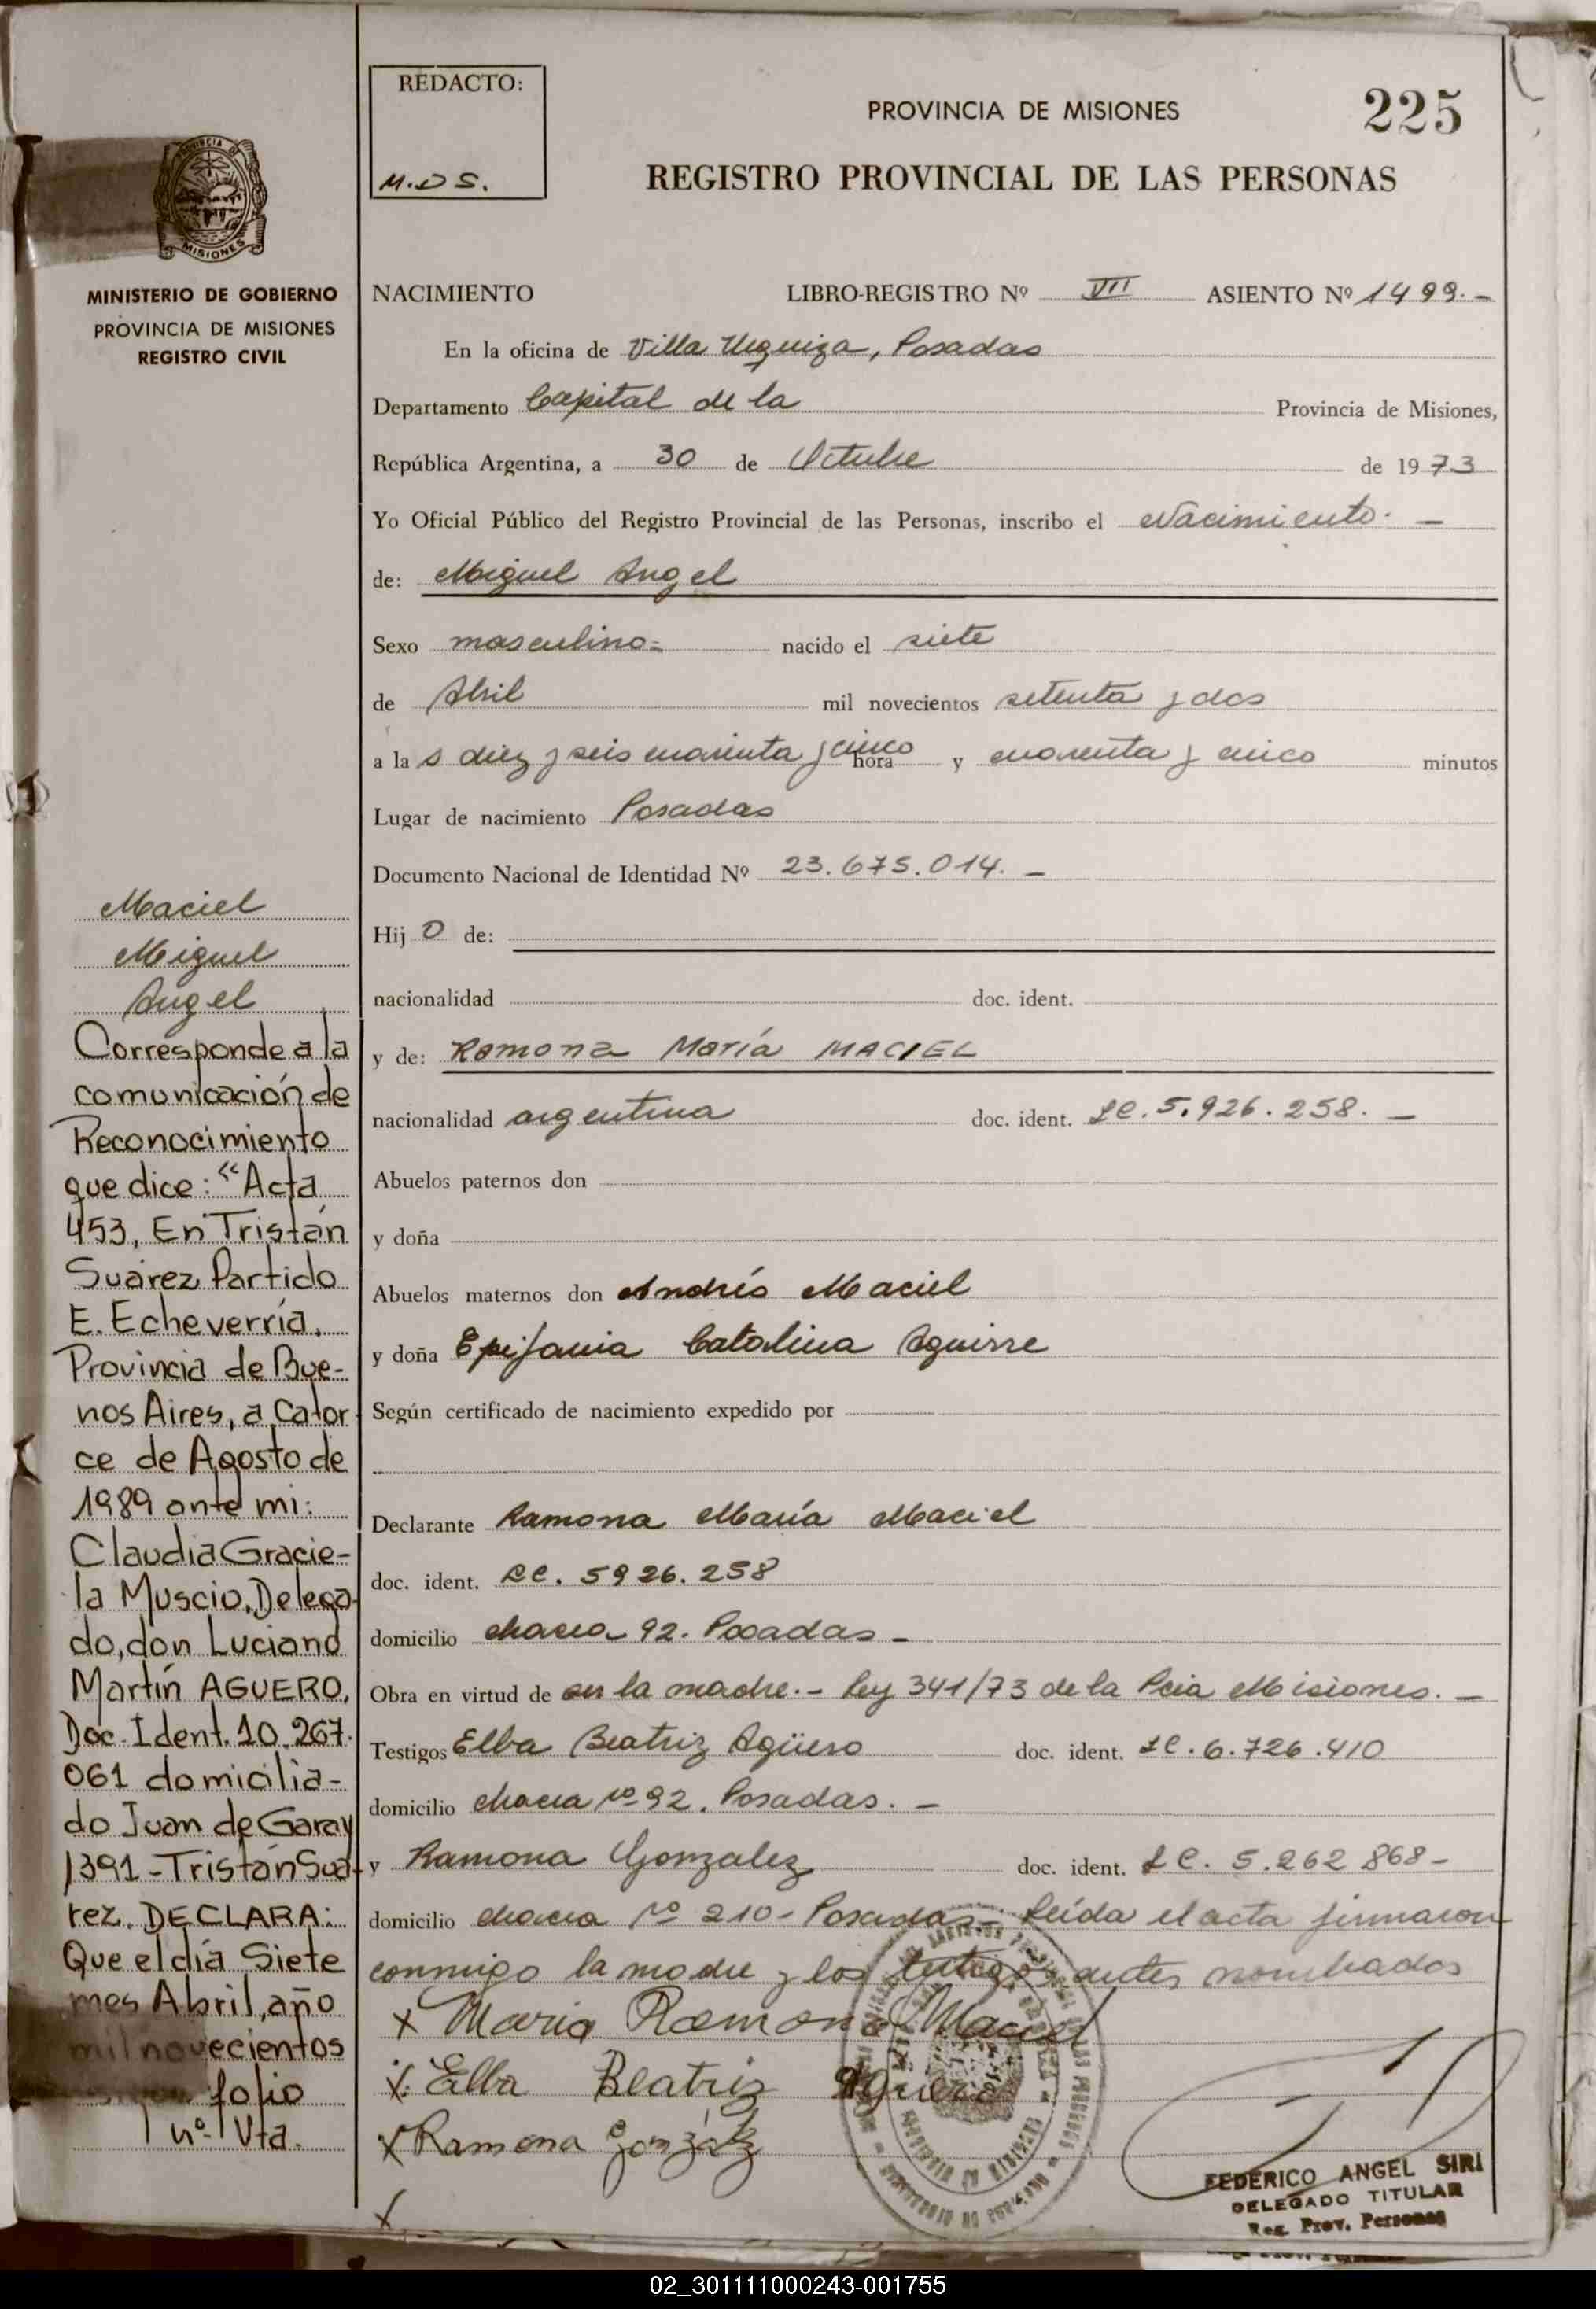 REDACTO:
M.D S.
PROVINCIA DE MISIONES
225
REGISTRO PROVINCIAL DE LAS PERSONAS
PROVINCIA DE
MISIONES
MINISTERIO DE GOBIERNO
PROVINCIA DE MISIONES
REGISTRO CIVIL
NACIMIENTO LIBRO-REGISTRO Nº VII ASIENTO Nº 1499.-
En la oficina de Villa Urquiza, Posadas
Departamento Capital de la Provincia de Misiones,
República Argentina, a 30 de Octubre de 1973
Yo Oficial Público del Registro Provincial de las Personas, inscribo el Nacimiento.-
de: Miguel Angel
Sexo masculino= nacido el siete
de Abril mil novecientos setenta y dos
a la s diez y seis cuarenta y cinco hora y cuarenta y cinco minutos
Lugar de nacimiento Posadas
Documento Nacional de Identidad Nº 23.675.014.-
Hij o de:
nacionalidad doc. ident.
y de: Ramona María MACIEL
nacionalidad argentina doc. ident. LC.5.926.258.-
Abuelos paternos don
y doña
Abuelos maternos don Andrés Maciel
y doña Epifania Catalina Aguirre
Según certificado de nacimiento expedido por
Declarante Ramona María Maciel
doc. ident. LC. 5926.258
domicilio chacra 92. Posadas-
Obra en virtud de ser la madre.- Ley 341/73 de la Pcia Misiones.-
Testigos Elba Beatriz Agüero doc. ident. LC.6.726.410
domicilio chacra nº 92. Posadas.-
y Ramona Gonzalez doc. ident. LC. 5.262 868-
domicilio chacra nº 210- Posadas- Leída el acta firmaron
conmigo la madre y los testigos antes nombrados
x Maria Ramona Maciel
x Elba Beatriz Aguero
x Ramona Gonzalez
x
FEDERICO ANGEL SIRI
DELEGADO TITULAR
Reg. Prov. Personas
Maciel
Miguel
Angel
Corresponde a la
comunicación de
Reconocimiento
que dice: "Acta
453, En Tristán
Suárez Partido
E. Echeverría,
Provincia de Bue-
nos Aires, a Cator
ce de Agosto de
1989 ante mi:
Claudia Gracie-
la Muscio, Delega
do, don Luciano
Martín AGUERO,
Doc. Ident. 10.267.
061 domicilia-
do Juan de Garay
1391-Tristán Suá-
rez. DECLARA:
Que el día Siete
mes Abril, año
mil novecientos
folio
nº 1 Vta.
02_301111000243-001755